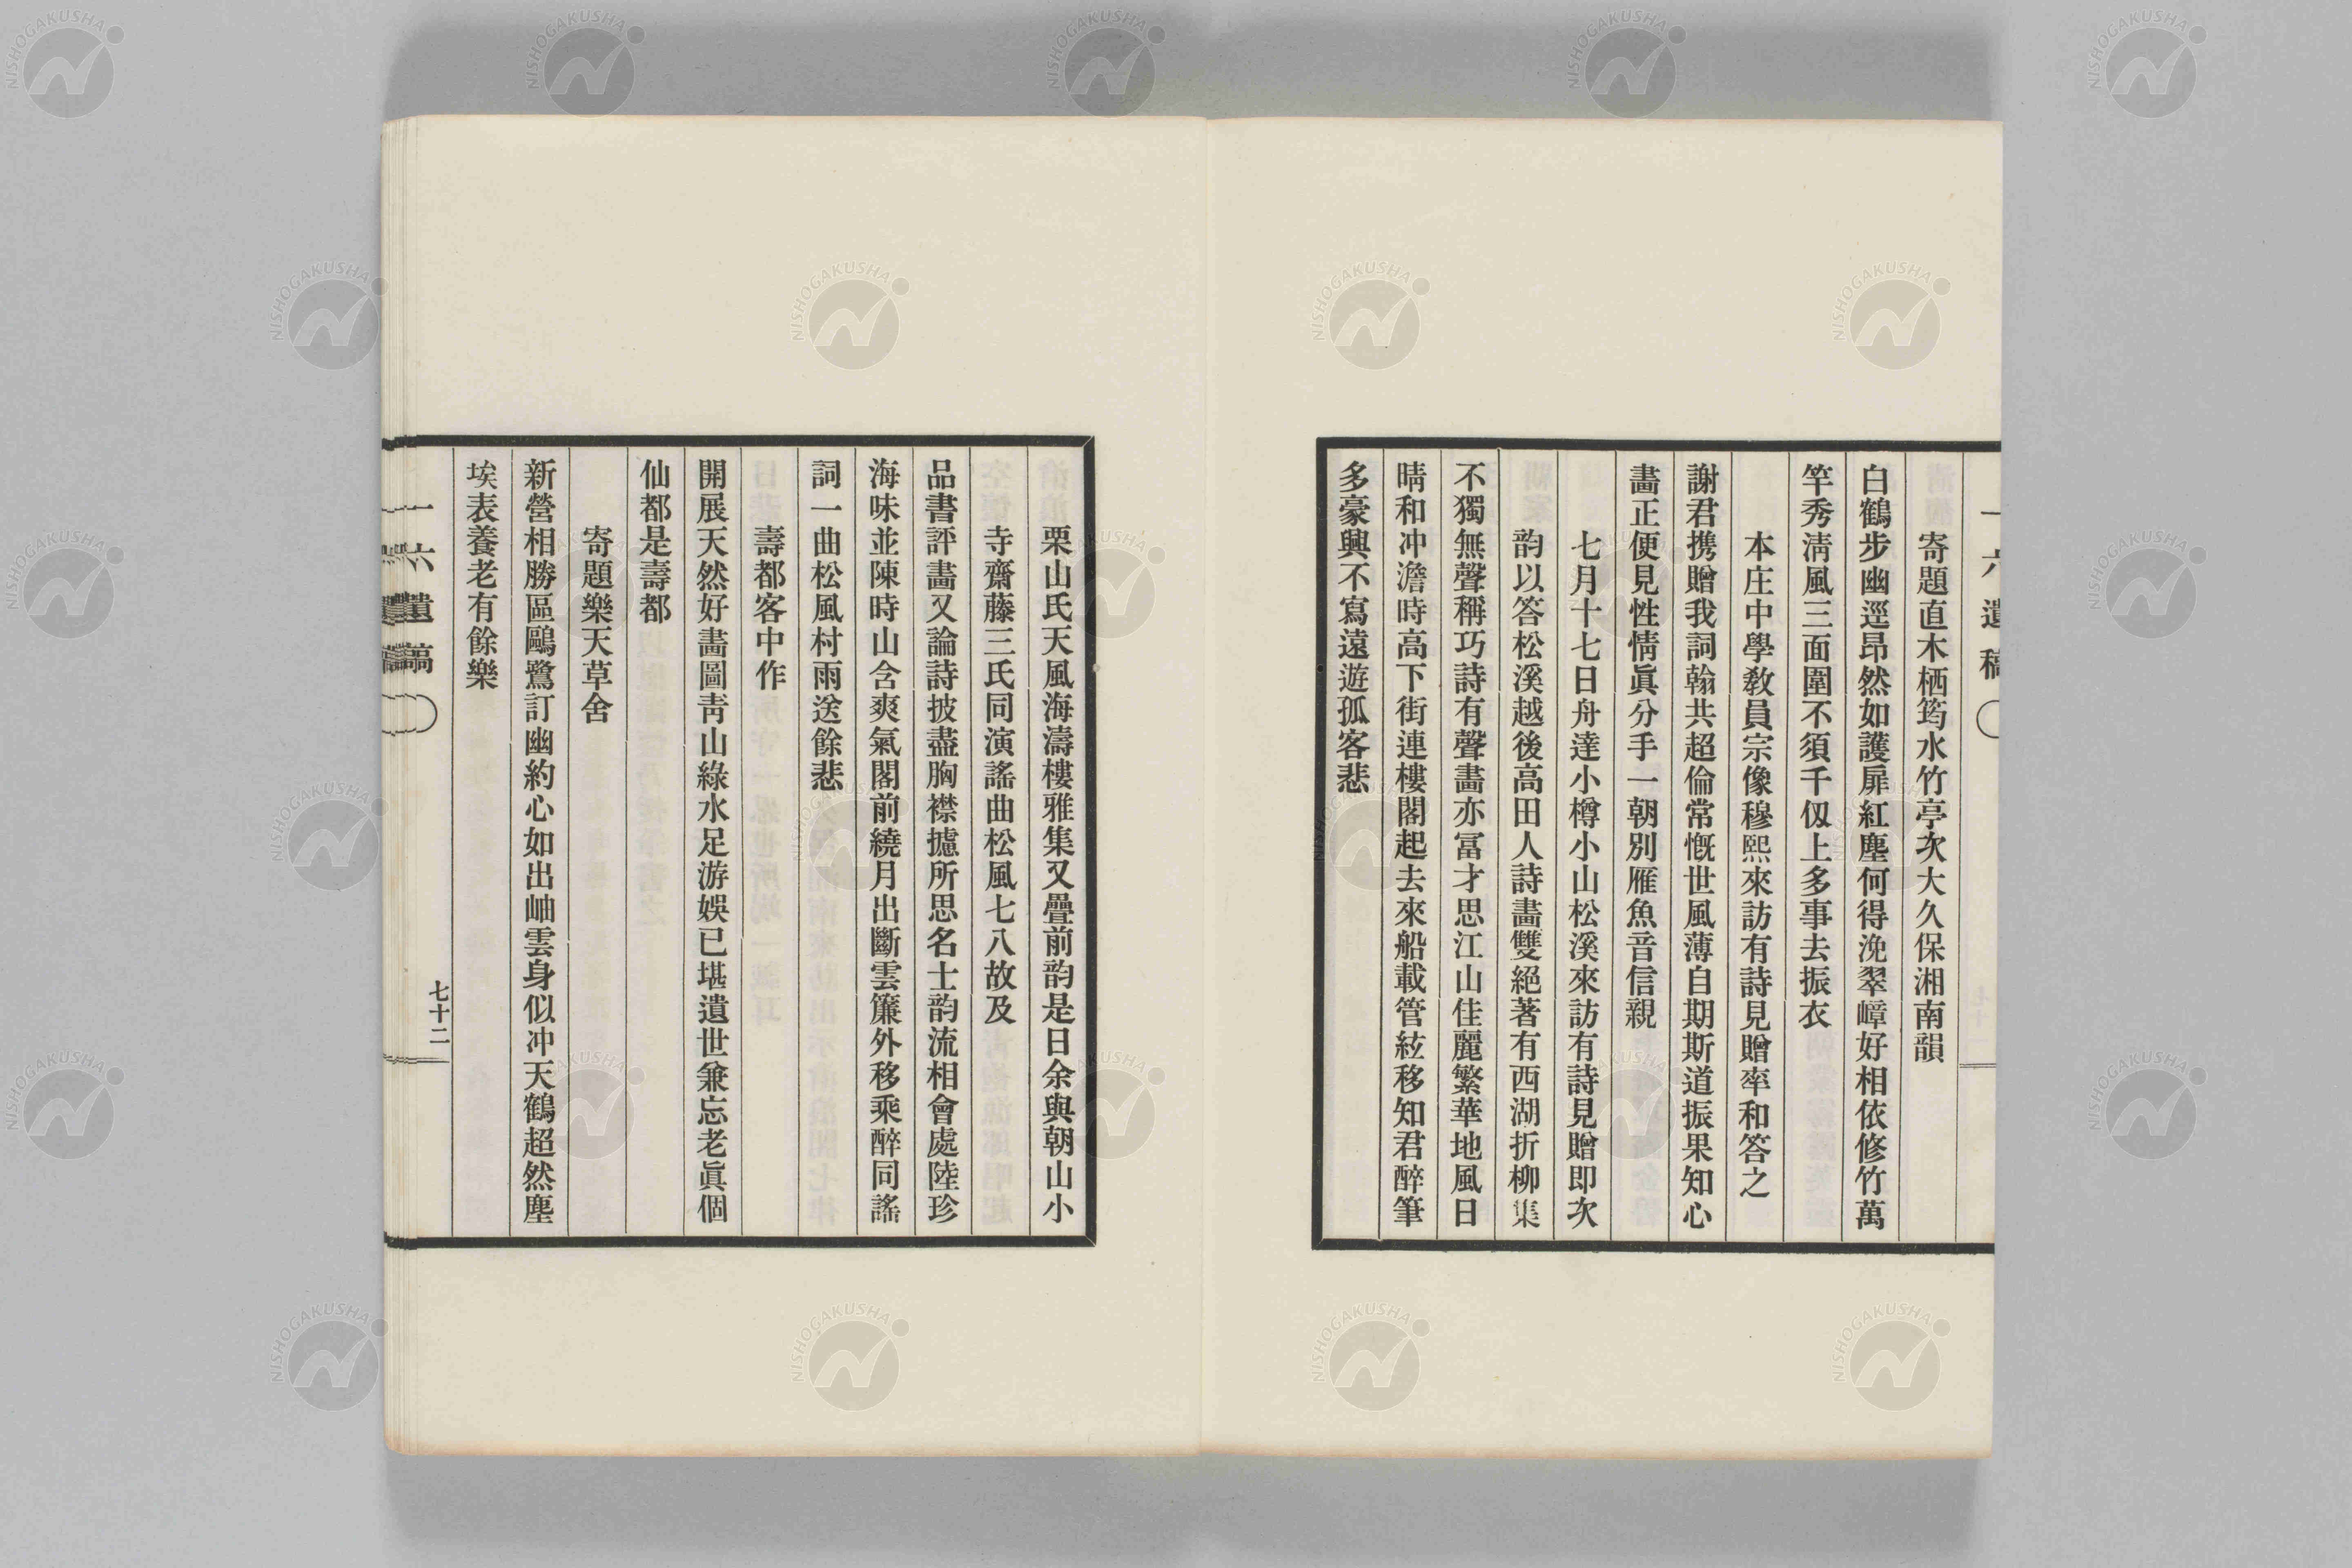 一六遺稿
寄題直木栖筠水竹亭次大久保湘南韻
白鶴步幽逕昂然如護扉紅塵何得浼翠嶂好相依修竹萬
竿秀淸風三面圍不須千仭上多事去振衣
本庄中學敎員宗像穆熙來訪有詩見贈率和答之
謝君携贈我詞翰共超倫常慨世風薄自期斯道振果知心
畵正便見性情眞分手一朝別雁魚音信親
七月十七日舟達小樽小山松溪來訪有詩見贈卽次
韵以答松溪越後高田人詩畵雙絕著有西湖折柳集
不獨無聲稱巧詩有聲畵亦富才思江山佳麗繁華地風日
晴和冲澹時高下街連樓閣起去來船載管絃移知君醉筆
多豪興不寫遠遊孤客悲
栗山氏天風海濤樓雅集又疊前韵是日余與朝山小
寺齋藤三氏同演謠曲松風七八故及
品書評畵又論詩披盡胸襟攄所思名士韵流相會處陸珍
海味並陳時山含爽氣閣前繞月出斷雲簾外移乘醉同謠
詞一曲松風村雨送餘悲
壽都客中作
開展天然好畵圖靑山綠水足游娛已堪遺世兼忘老眞個
仙都是壽都
寄題樂天草舍
新營相勝區鷗鷺訂幽約心如出岫雲身似冲天鶴超然塵
埃表養老有餘樂
一六遺稿
七十二
NISHOGAKUSHA